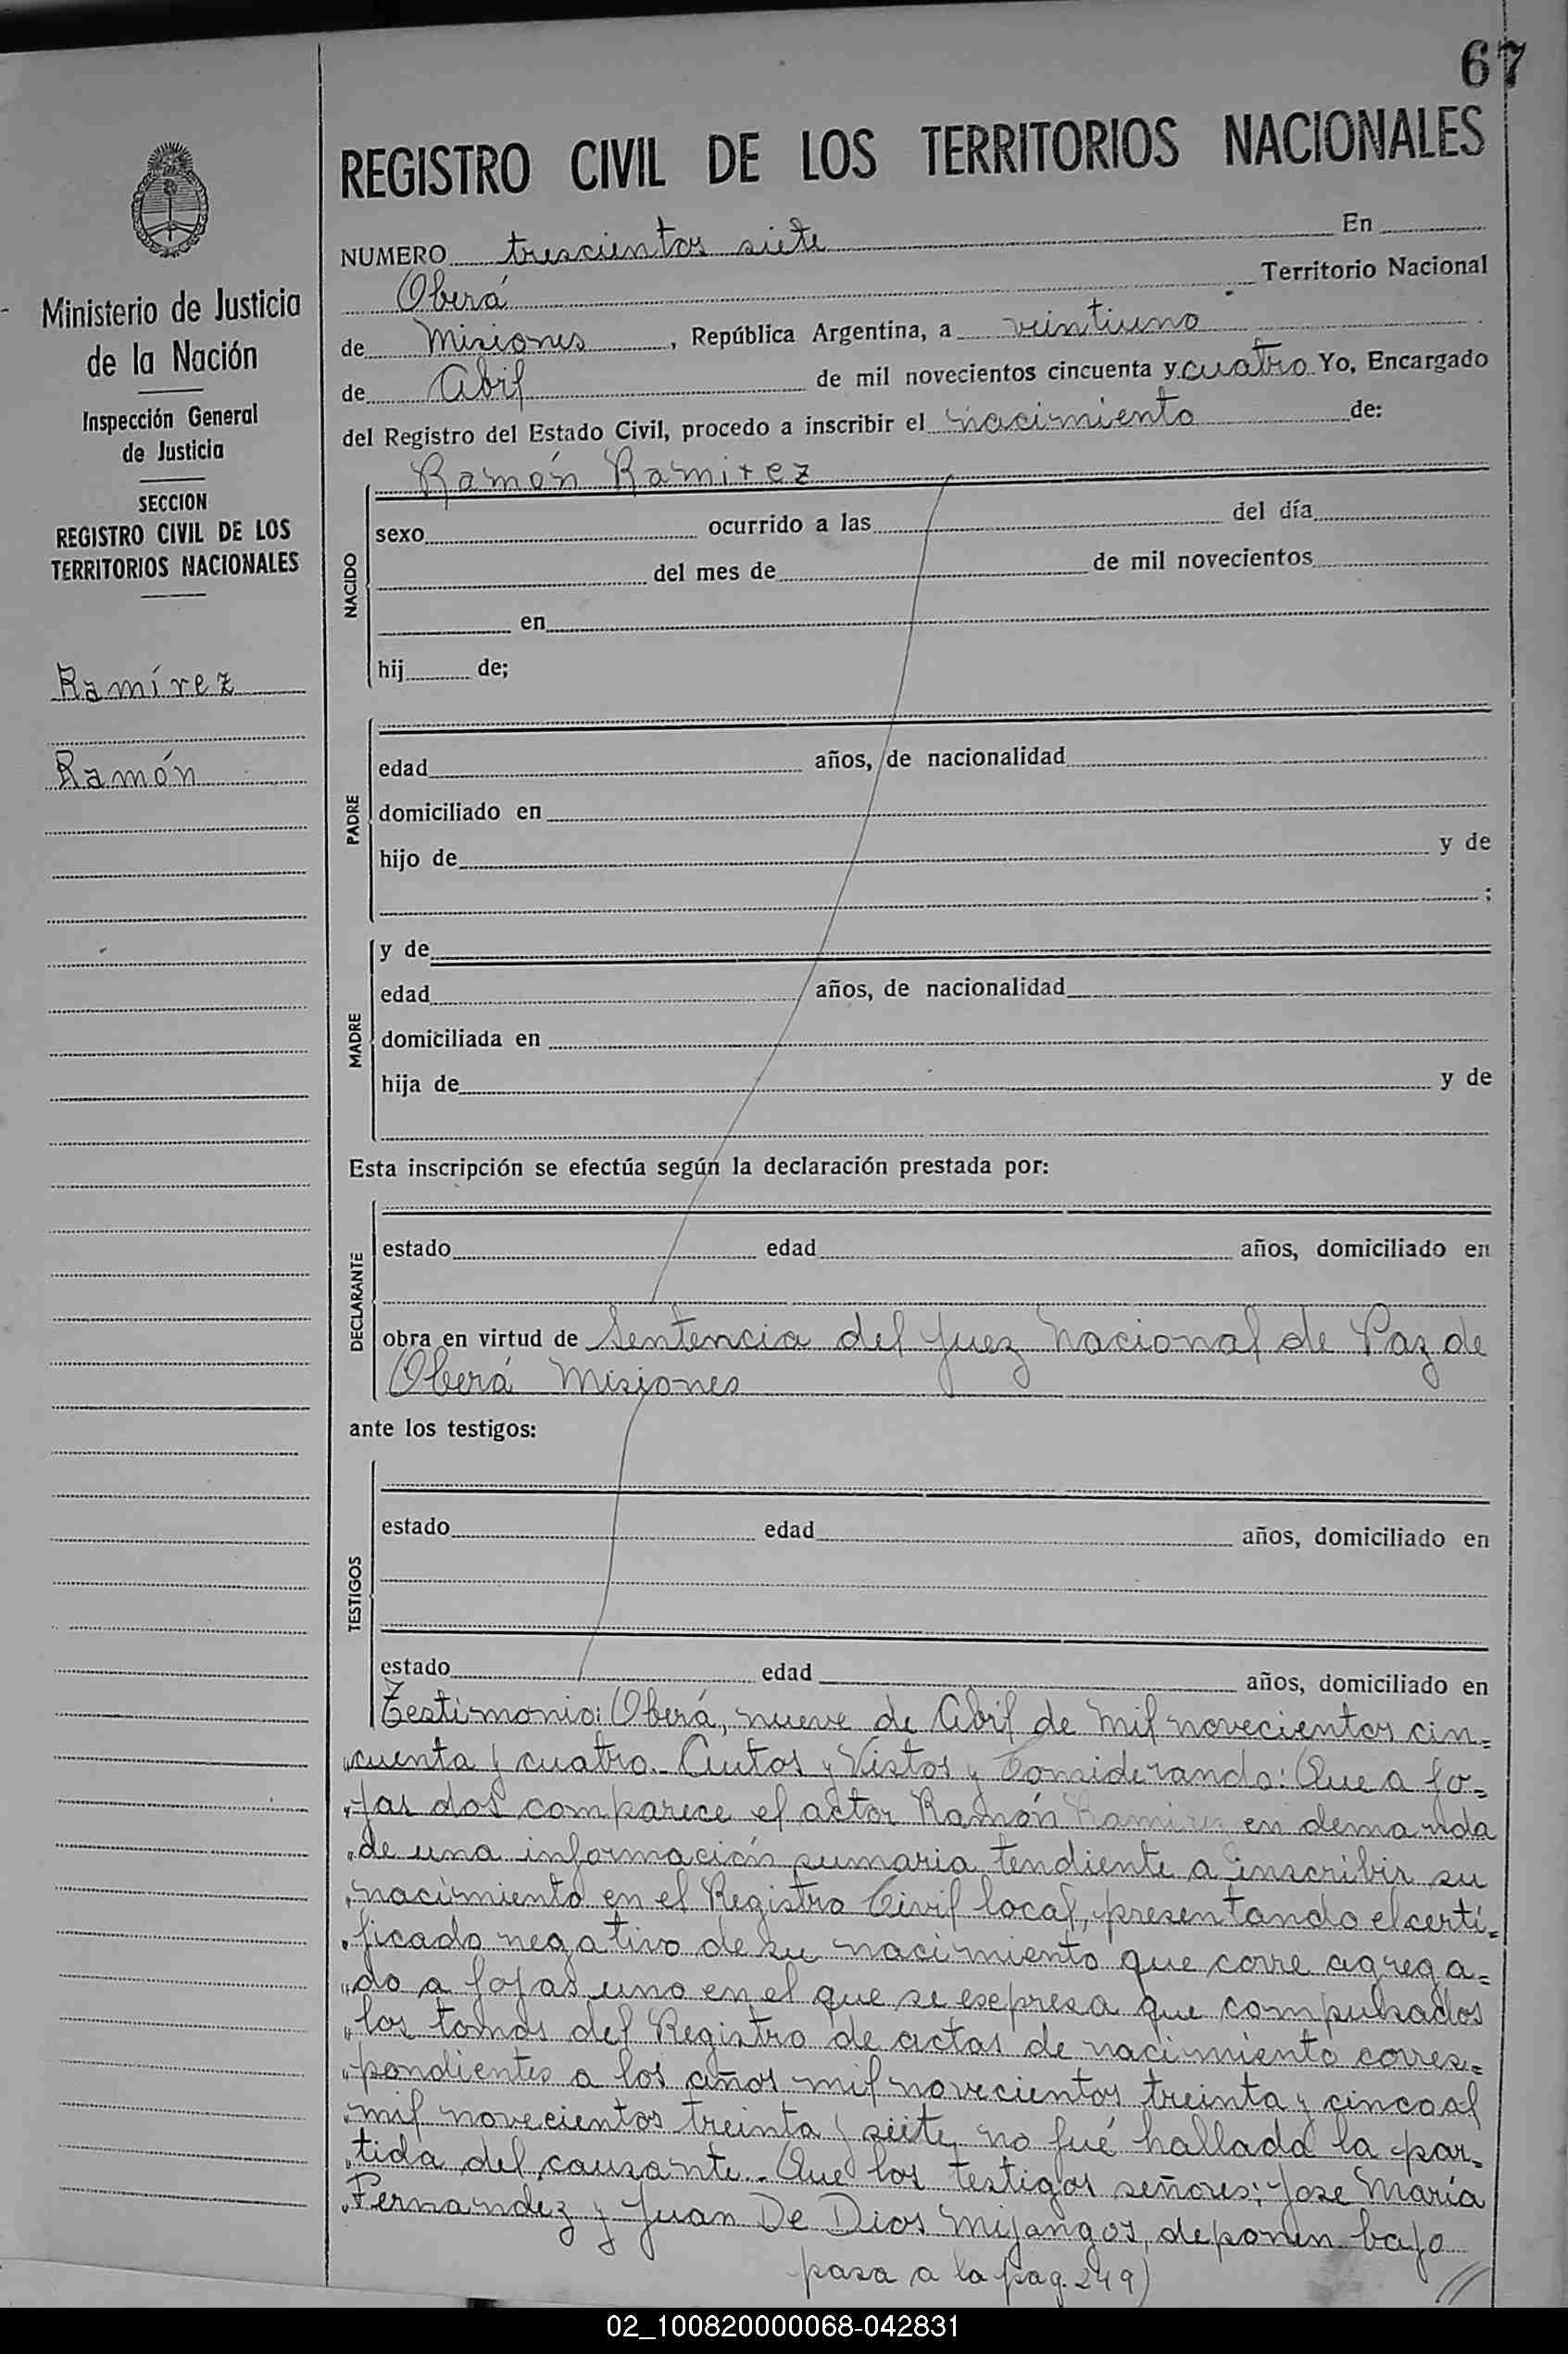 67
REGISTRO CIVIL DE LOS TERRITORIOS NACIONALES
Ministerio de Justicia
de la Nación
Inspección General
de Justicia
SECCION
REGISTRO CIVIL DE LOS
TERRITORIOS NACIONALES
Ramírez
Ramón
NUMERO trescientos siete En
Oberá Territorio Nacional
de Misiones, República Argentina, a veintiuno
de Abril de mil novecientos cincuenta y cuatro Yo, Encargado
del Registro del Estado Civil, procedo a inscribir el nacimiento de:
Ramón Ramirez
NACIDO
sexo ocurrido a las del día
del mes de de mil novecientos
en
hij de;
PADRE
edad años, de nacionalidad
domiciliado en
hijo de y de
;
MADRE
y de
edad años, de nacionalidad
domiciliada en
hija de y de
Esta inscripción se efectúa según la declaración prestada por:
DECLARANTE
estado edad años, domiciliado en
obra en virtud de Sentencia del Juez Nacional de Paz de
Oberá Misiones
ante los testigos:
TESTIGOS
estado edad años, domiciliado en
estado edad años, domiciliado en
Testimonio: Oberá, nueve de Abril de mil novecientos cin=
"cuenta y cuatro.- Autos y Vistos y Considerando: Que a fo=
"jas dos comparece el actor Ramón Ramirez en demanda
"de una información sumaria tendiente a inscribir su
"nacimiento en el Registro Civil local, presentando el certi=
"ficado negativo de su nacimiento que corre agrega=
"do a fojas uno en el que se expresa que compulsados
"los tomos del Registro de actas de nacimiento corres=
"pondientes a los años mil novecientos treinta y cinco al
"mil novecientos treinta y siete, no fué hallada la par=
"tida del causante.- Que los testigos señores: Jose María
"Fernandez y Juan De Dios Mijangos, deponen bajo
pasa a la pag. 249)
02_100820000068-042831